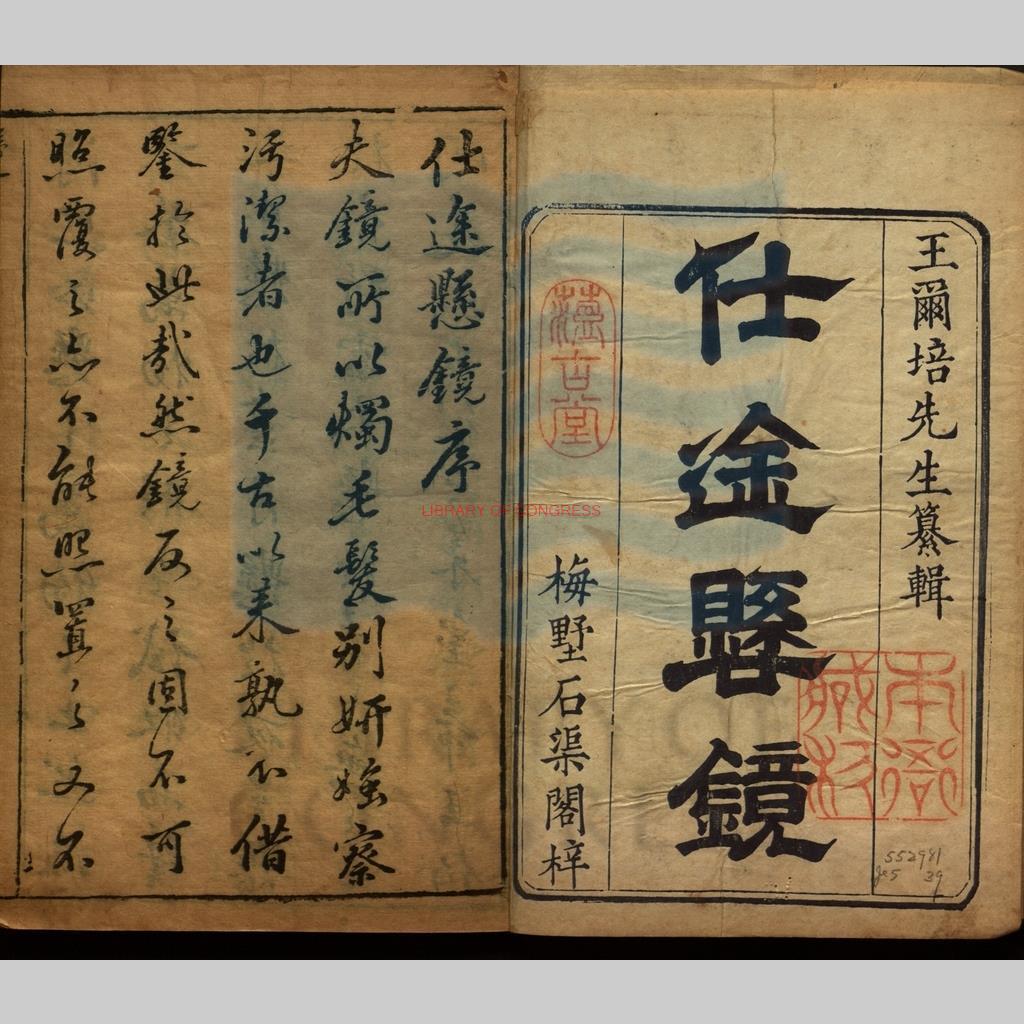 王爾培先生纂輯
仕途懸鏡
梅墅石渠閣梓
古堂
本衙藏板
仕途懸鏡序
夫鏡所以燭毛髮別妍媸察
污潔者也千古以来孰不借
鑒於此哉然鏡反之固不可
照覆之亦不能照置之又不
LIBRARY OF CONGRESS
552981
39